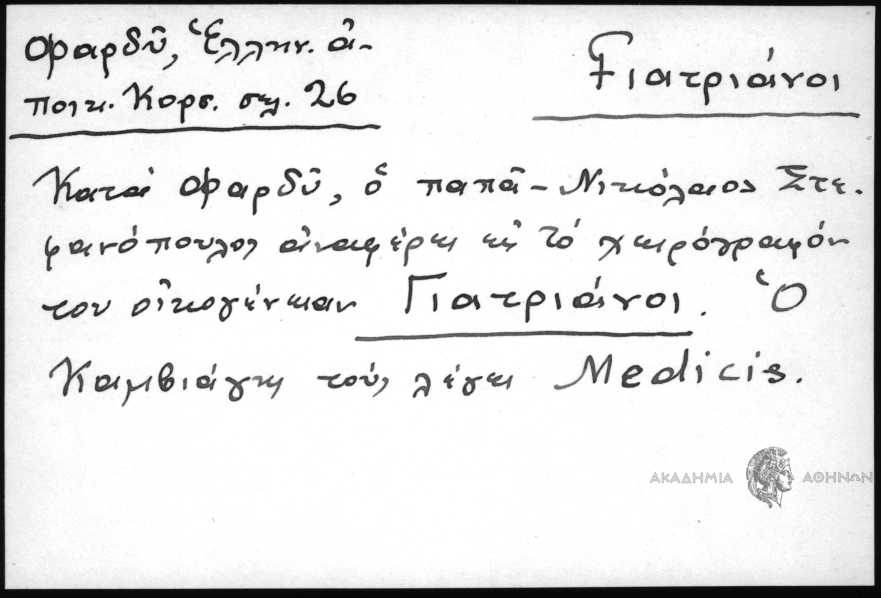 Φαρδῦ, Ἑλλην. ἀ-
ποικ. Κορσ. σελ. 26
Γιατριάνοι
Κατὰ Φαρδῦ, ὁ παπᾶ-Νικόλαος Στε-
φανόπουλος ἀναφέρει εἰς τό χειρόγραφόν
του οἰκογένειαν Γιατριάνοι. Ὁ
Καμβιάγης τούς λέγει Medicis.
ΑΚΑΔΗΜΙΑ ΑΘΗΝΩΝ